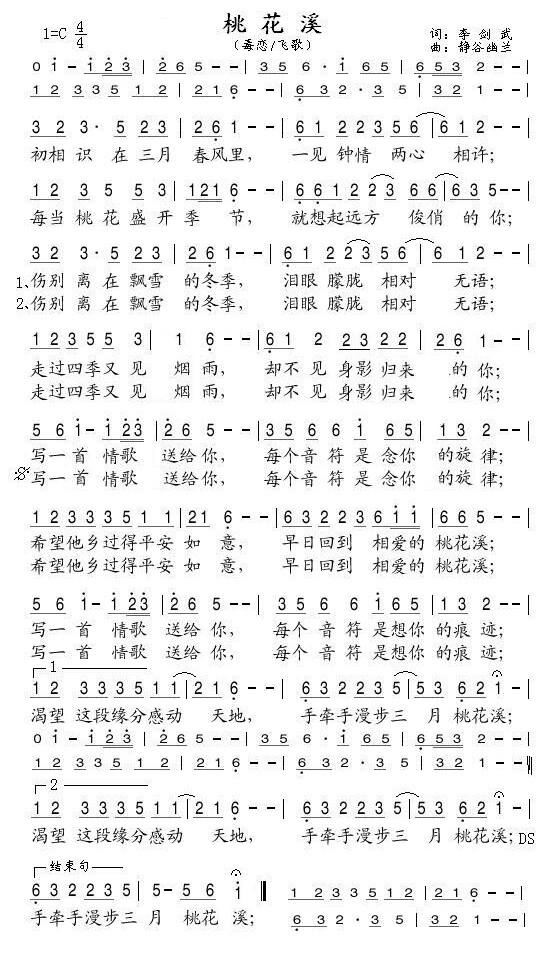 桃花溪
1=C 4/4
(毒恋/飞歌)
词：李剑武
曲：静谷幽兰
0 1 - 1 2 3 | 2 6 5 - - | 3 5 6 · 1 6 5 | 6 5 3 - - |
1 2 3 3 3 5 1 2 | 2 1 6 - - | 6 3 2 · 3 5 | 6 2 1 - - |
3 2 3 · 5 2 3 | 2 6 1 - - | 6 1 2 2 3 5 6 | 6 1 2 - - |
初相识在三月 春风里， 一见钟情两心 相许；
1 2 3 5 5 3 | 1 2 1 6 - - | 6 6 1 2 2 3 6 6 | 6 3 5 - - |
每当桃花盛开季 节， 就想起远方 俊俏的你；
3 2 3 · 5 2 3 | 2 6 1 - - | 6 1 2 2 3 5 6 | 6 1 2 - - |
1、伤别离在飘雪 的冬季， 泪眼朦胧相对 无语；
2、伤别离在飘雪 的冬季， 泪眼朦胧相对 无语；
1 2 3 5 5 3 | 1 6 - - | 6 1 2 2 2 3 2 2 | 2 6 1 - - |
走过四季又见 烟雨， 却不见身影归来 的你；
走过四季又见 烟雨， 却不见身影归来 的你；
5 6 1 - 1 2 3 | 2 6 5 - - | 3 5 6 6 1 6 5 | 1 3 2 - - |
写一首情歌 送给你， 每个音符是念你 的旋律；
写一首情歌 送给你， 每个音符是念你 的旋律；
1 2 3 3 3 5 1 1 | 2 1 6 - - | 6 3 2 2 3 6 1 1 | 6 6 5 - - |
希望他乡过得平安 如意， 早日回到 相爱的桃花溪；
希望他乡过得平安 如意， 早日回到 相爱的桃花溪；
5 6 1 - 1 2 3 | 2 6 5 - - | 3 5 6 6 1 6 5 | 1 3 2 - - |
写一首情歌 送给你， 每个音符是想你 的痕迹；
写一首情歌 送给你， 每个音符是想你 的痕迹；
1
1 2 3 3 3 5 1 2 | 2 1 6 - - | 6 3 2 2 3 5 | 5 3 6 2 1 |
渴望这段缘分感动 天地， 手牵手漫步三 月桃花溪；
0 1 - 1 2 3 | 2 6 5 - - | 3 5 6 · 1 6 5 | 6 5 3 - - |
1 2 3 3 3 5 1 2 | 2 1 6 - - | 6 3 2 · 3 5 | 6 2 1 - - ‖
2
1 2 3 3 3 5 1 2 | 2 1 6 - - | 6 3 2 2 3 5 | 5 3 6 2 1 - |
渴望这段缘分感动 天地， 手牵手漫步三 月桃花溪；DS
结束句
6 3 2 2 3 5 | 5 - 5 6 | 6 - - ‖ 1 2 3 3 3 5 1 2 | 2 1 6 - - |
手牵手漫步三 月桃花 溪； 6 3 2 · 3 5 | 6 2 1 - - |